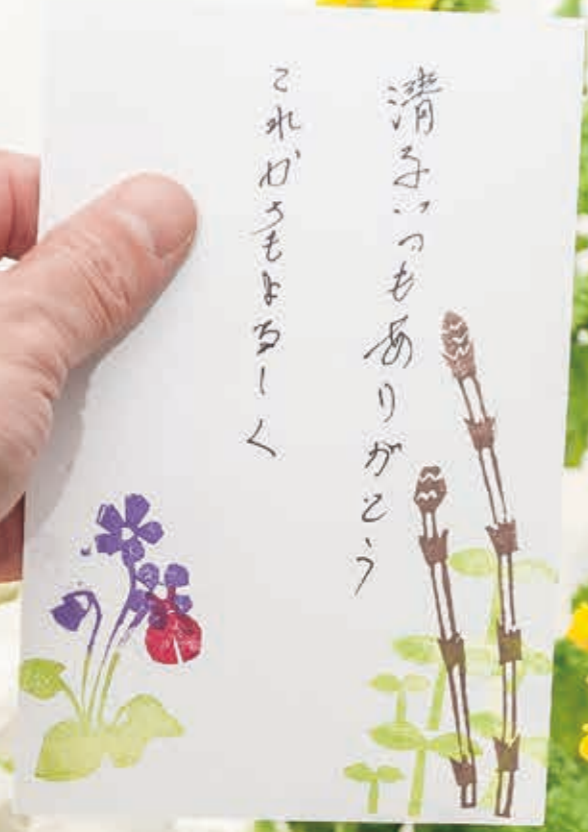 清子いつもありがとう
これからもよろしく